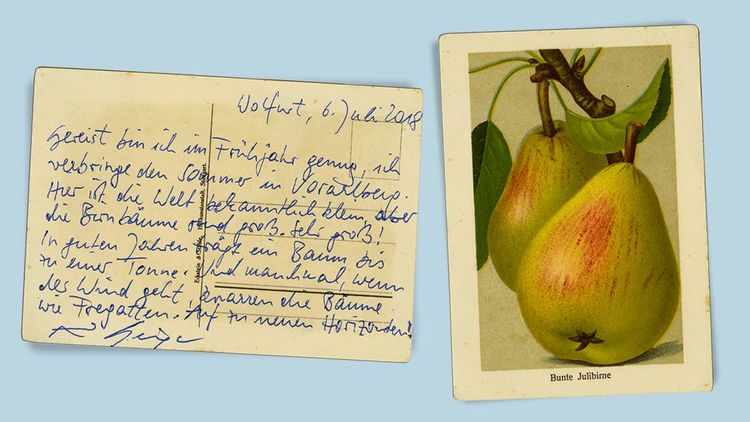 Wolfurt, 6. Juli 2018
Gereist bin ich im Frühjahr genug, ich
verbringe den Sommer in Vorarlberg.
Hier ist die Welt bekanntlich klein, aber
die Birnbäume sind groß. Sehr groß!
In guten Jahren trägt ein Baum bis
zu einer Tonne. Und manchmal, wenn
der Wind geht, knarren die Bäume
wie Fregatten. Auf zu neuen Horizonten!
Bunte Julibirne